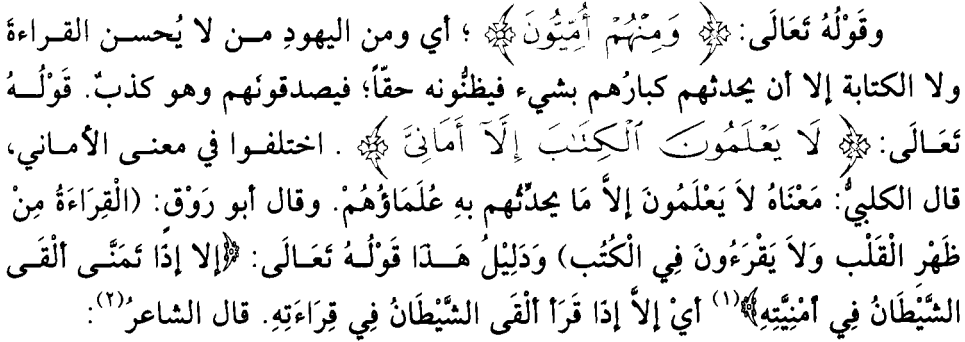 وقَوْلُهُ تَعَالَى: ﴿ وَمِنْهُمْ أُمِّيُّونَ ﴾ ؛ أي ومن اليهودِ من لا يُحسن القراءةَ
ولا الكتابة إلا أن يحدثهم كبارُهم بشيء فيظنُّونه حقّاً؛ فيصدقونَهم وهو كذبٌ. قَوْلُهُ
تَعَالَى: ﴿ لَا يَعْلَمُونَ ٱلْكِتَٰبَ إِلَّآ أَمَانِىَّ ﴾ . اختلفوا في معنى الأماني،
قال الكلبيُّ: مَعْنَاهُ لاَ يَعْلَمُونَ إلاَّ مَا يحدِّثُهم بهِ عُلَمَاؤُهُمْ. وقال أبو رَوْقٍ: (الْقِرَاءَةُ مِنْ
ظَهْرِ الْقَلْب وَلاَ يَقْرَءُونَ فِي الْكُتُب) وَدَلِيْلُ هَذَا قَوْلُهُ تَعَالَى: ﴿إلا إذَا تَمَنَّى ألْقَى
الشَّيْطَانُ فِي أمْنِيَّتِهِ﴾(١) أيْ إلاَّ إذَا قَرَأ ألْقَى الشَّيْطَانُ فِي قِرَاءَتِهِ. قال الشاعرُ(٢):